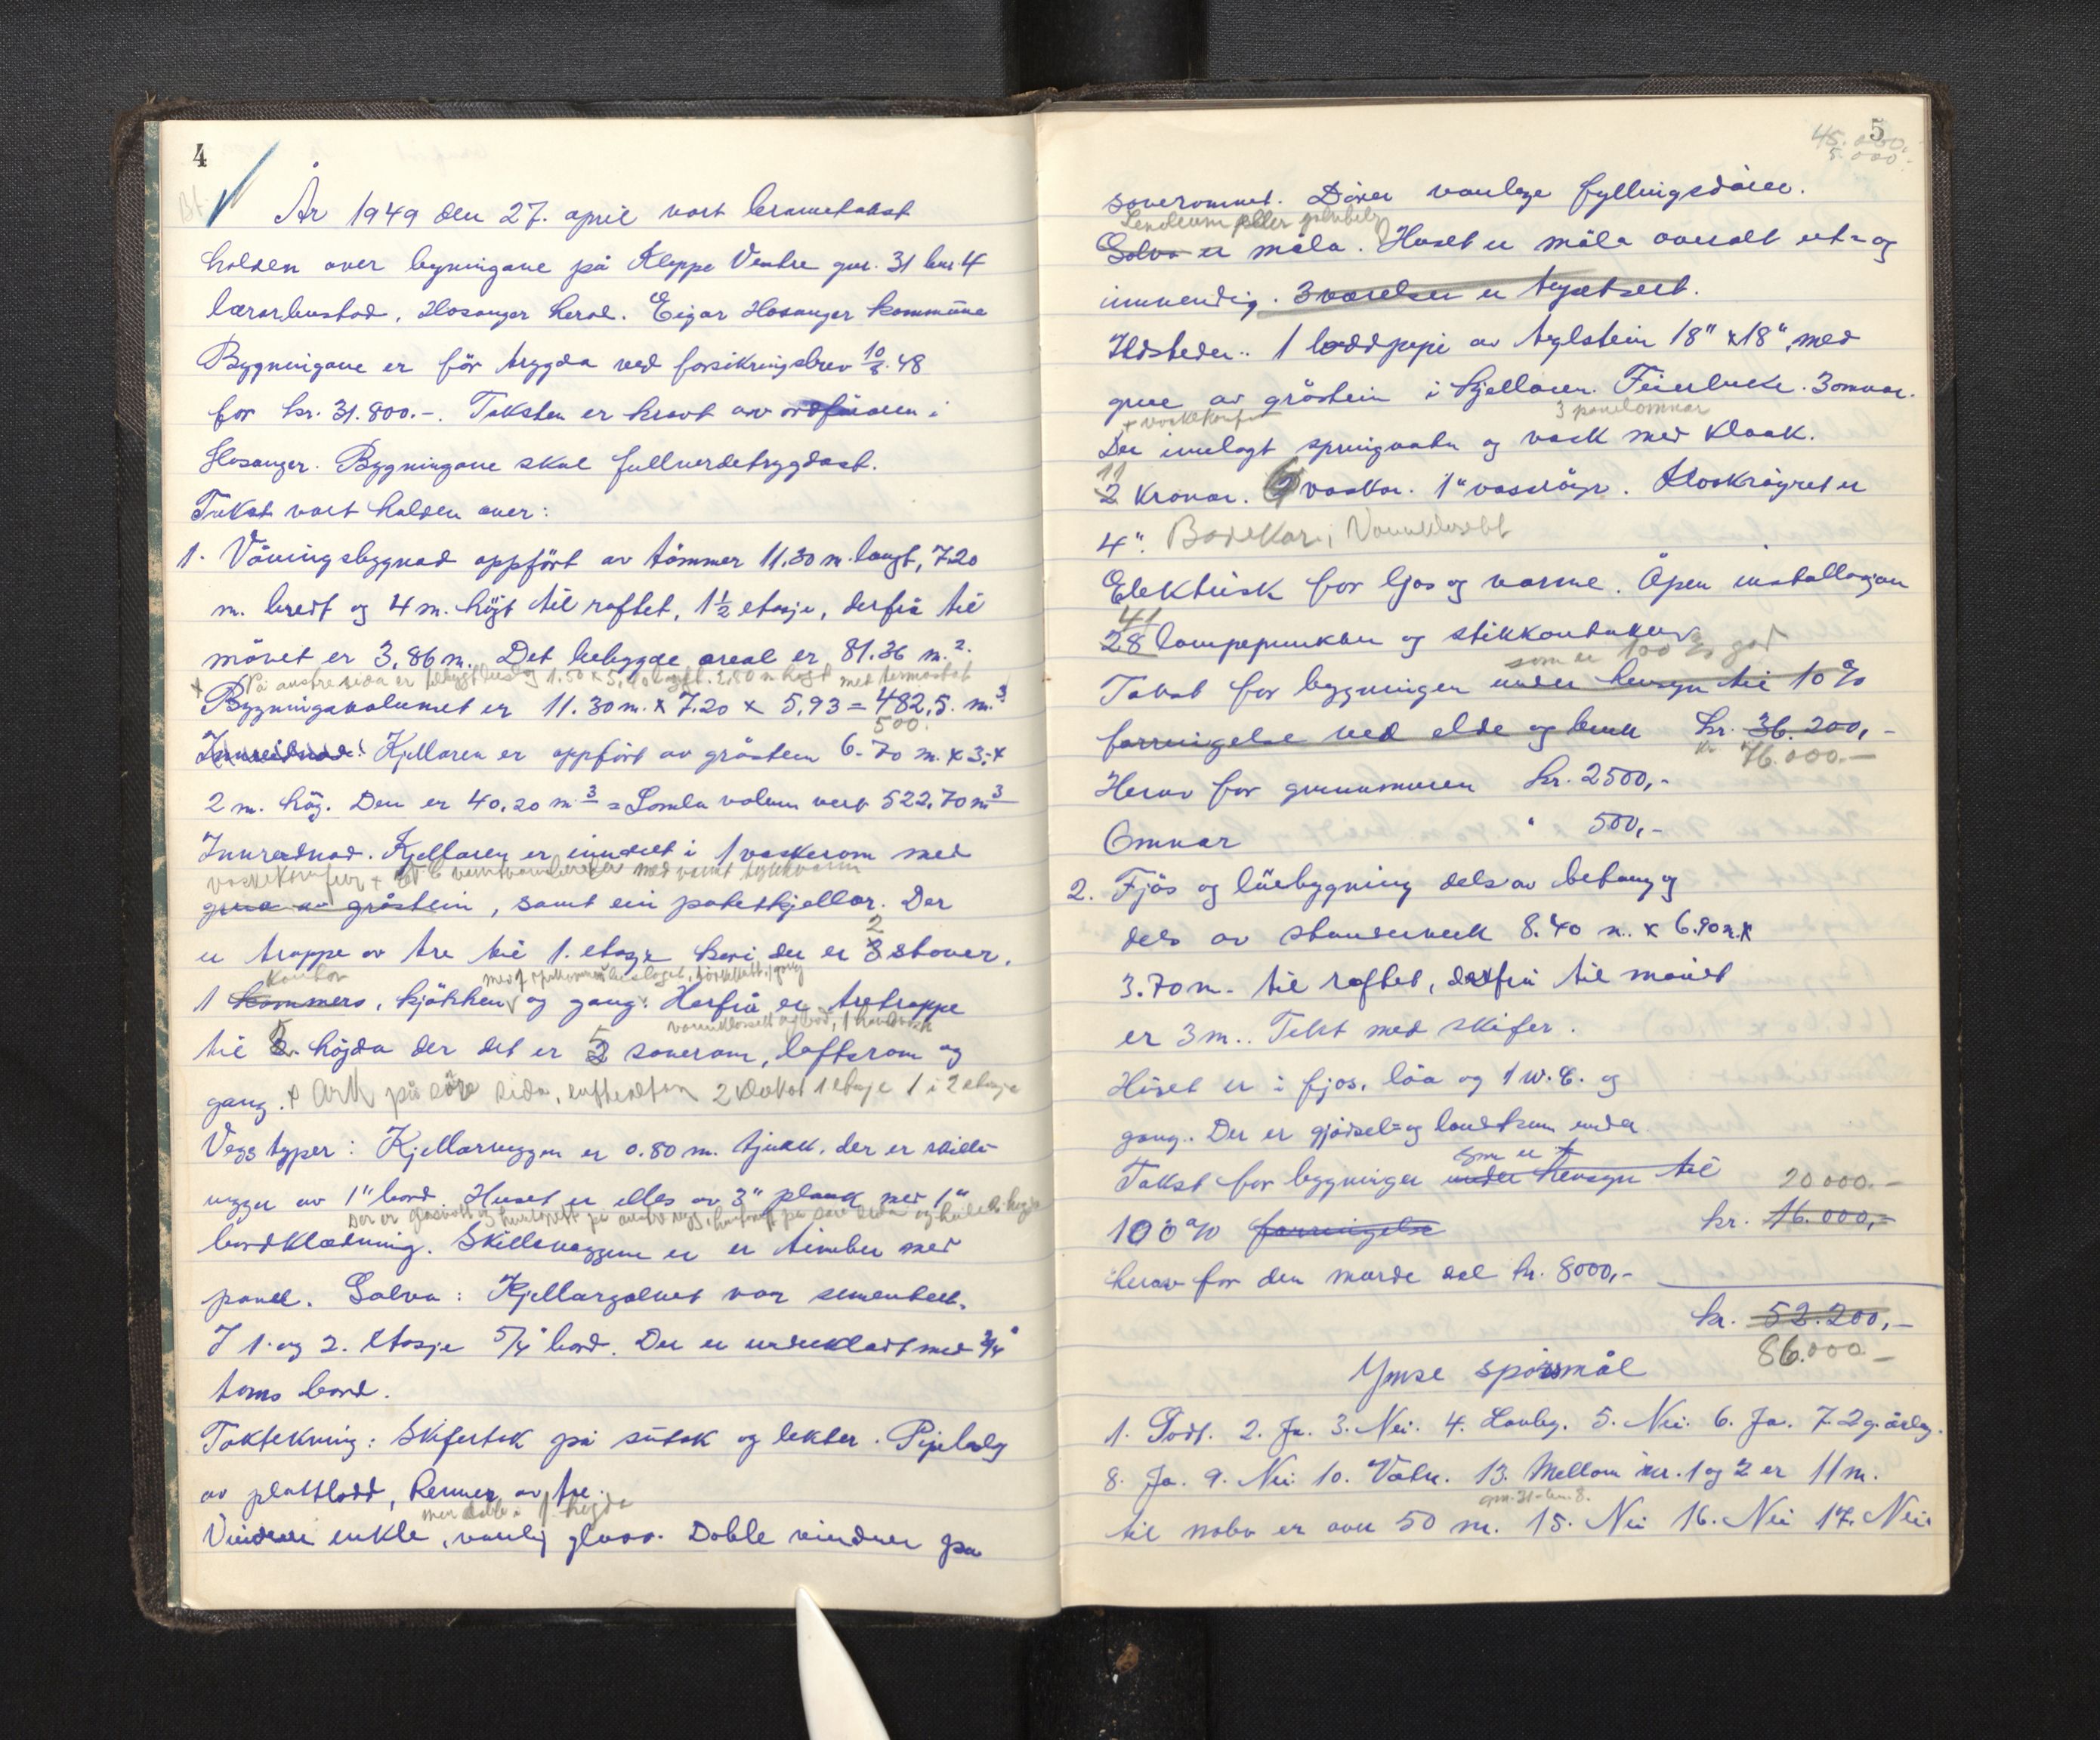 4
Bt.
År 1949 den 27. april vart branntakst
holden over bygningane på Kleppe Ventre gnr. 31 bnr. 4
lærarbustad, Hosanger herad. Eigar Hosanger kommune
Bygningane er för trygda ved forsikringsbrev 10/8 48
for kr. 31.800.-. Taksten er kravt av ordföraren i
Hosanger. Bygningane skal fullverdetrygdast.
Takst vart halden over:
1. Våningsbygnad oppfört av tömmer 11.30 m. langt, 7.20
m. breit og 4 m. högt til raftet, 1½ etasje, derfrå til
mönet er 3,86 m. Det bebygde areal er 81.36 m.2.
+ På austre sida er tilbygt 1.50 x 5,40 langt. 2,80 m högt med
Bygningsvolumet er 11.30 m. x 7.20 x 5,93 = 482,5. m.3
500.
Innreidnad! Kjellaren er oppfört av gråstein 6.70 m. x 3. x
2 m. hög. Den er 40,20 m3 = Samla volum vert 522,70 m3
Innreidnad. Kjellaren er inndelt i 1 vaskerom med
med varmt
grua av gråstein, samt ein potetkjellar. Der
2
er trappe av tre til 1. etasje kvi der er 3 stover,
kontor
1 kammers, kjökken og gang. Herfrå er tretrappe
vannklosett og bad, 1 handvask
til 2. högda der det er 5 soverom, loftsrom og
gang. + Ark på söre sida, 2 1 etasje 1 i 2 etasje
Veggtyper: Kjellarveggen er 0.80 m. tjukk, der er skille-
vegger av 1" bord. Huset er elles av 3" plank med 1"
Der er på
bordklædning. Skilleveggene er er timber med
panel. Golva: Kjellargolvet var sementert.
I 1. og 2. etasje 5/4" bord. Der er underkledt med 3/4"
toms bord.
Taktekning: Skifertak på sutak og lekter. Pipebeslag
av plattlodd, Renner av tre.
men doble i 1. högda
Vinduer enkle, vanlig glass. Doble vinduer på
5
45.000.-
5.000.-
soverommet. Dörer vanlege fyllingsdörer.
Lenoleum eller golvbelegg
Golva er måla. Huset er måla overalt ut- og
innvendig. 3 værelser er tapetsert.
Ildsteder.. 1 loddpipe av teglstein 18" x 18", med
grue av gråstein i kjellaren. Feierluke. 3 omnar.
+ vaskekomfyr 3 panelomnar
Der innlagt springvatn og vask med kloak.
11
2 kranar. 6 vaskar. 1" vassröyr. Kloakröyret er
4". Badekar, Vannklosett
Elektrisk for ljos og varme. Open installasjon
41
28 lampepunkter og stikkontakter
som er 100 % god
Takst for bygningen under hensyn til 10 %
forringelse ved elde og bruk kr. 36.200,-
kr 76.000.-
Herav for grunnmuren kr. 2500,-
Omnar " 500,-
2. Fjös og löebygning dels av betong og
dels av standerverk 8.40 m. x 6.90 m. x
3.70 m. til raftet, derfrå til mönet
er 3 m.. Tekt med skifer.
Huset er i fjos, löa og 1 W.C. og
gang. Der er gjödsel- og landrum under
som er
Takst for bygningen under hensyn til 20 000.-
100 % forringelse kr. 16.000,-
herav for den murde del kr. 8000,-
kr. 52.200,-
86.000.-
Ymse spörsmål
1. Godt. 2. Ja. 3. Nei. 4. Landbg. 5. Nei. 6. Ja. 7. 2 g. årleg.
8. Ja. 9. Nei 10. Vatn. 13. Mellom nr. 1 og 2 er 11 m.
gnr. 31 - bnr. 8.
til nabo er over 50 m. 15. Nei 16. Nei 17. Nei